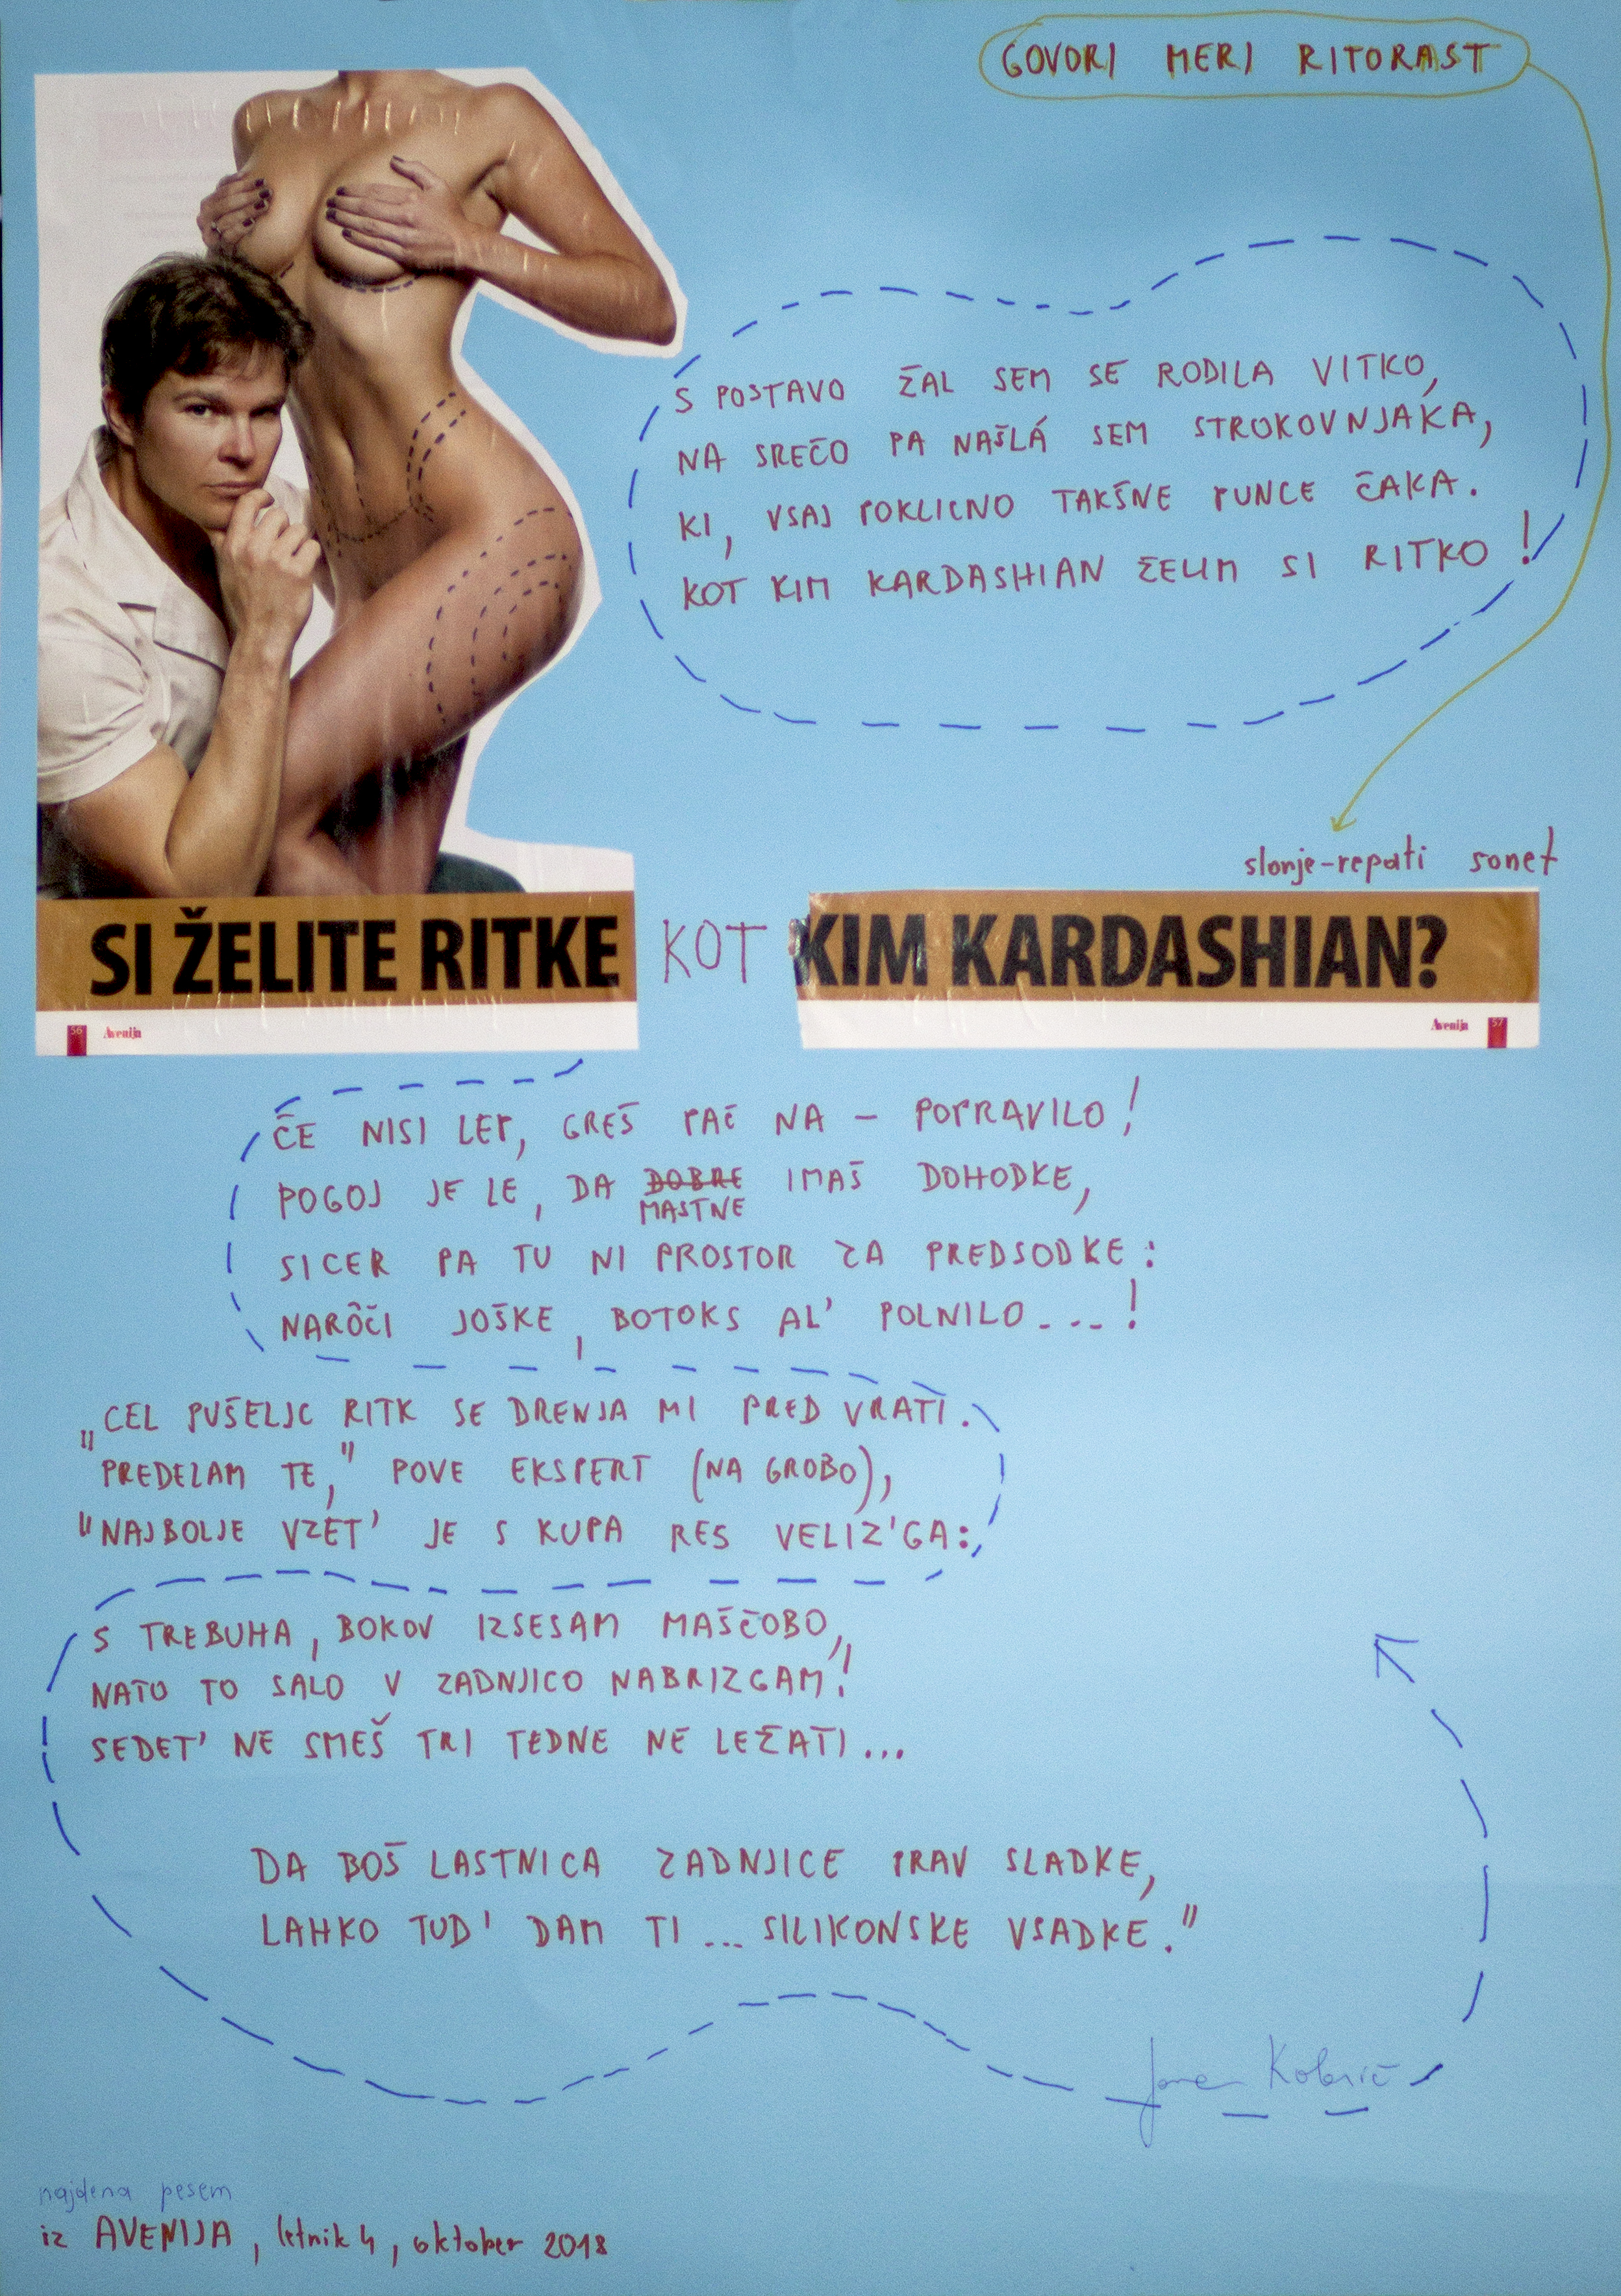 GOVORI MERI RITORAST
S POSTAVO ŽAL SEM SE RODILA VITKO,
NA SREČO PA NAŠLÁ SEM STROKOVNJAKA,
KI, VSAJ POKLICNO TAKŠNE PUNCE ČAKA.
KOT KIM KARDASHIAN ŽELIM SI RITKO!
slonje-repati sonet
SI ŽELITE RITKE KOT KIM KARDASHIAN?
56 Avenija
Avenija 57
ČE NISI LEP, GREŠ PAČ NA – POPRAVILO!
POGOJ JE LE, DA DOBRE IMAŠ DOHODKE,
MASTNE
SICER PA TU NI PROSTOR ZA PREDSODKE:
NARÔČI JOŠKE, BOTOKS AL' POLNILO...!
„CEL PUŠELJC RITK SE DRENJA MI PRED VRATI.
PREDELAM TE," POVE EKSPERT (NA GROBO),
"NAJBOLJE VZET' JE S KUPA RES VELIZ'GA:
S TREBUHA, BOKOV IZSESAM MAŠČOBO,
NATO TO SALO V ZADNJICO NABRIZGAM"!
SEDET' NE SMEŠ TRI TEDNE NE LEŽATI...
DA BOŠ LASTNICA ZADNJICE PRAV SLADKE,
LAHKO TUD' DAM TI... SILIKONSKE VSADKE."
najdena pesem
iz AVENIJA, letnik 4, oktober 2018